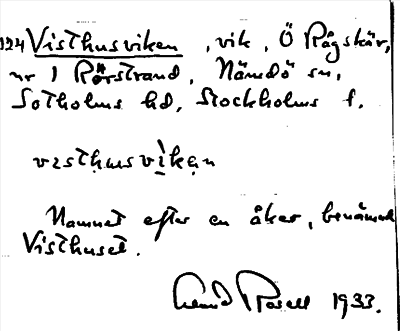 124 Visthusviken, vik, Ö Rågskär,
nr 1 Rörstrand, Nämdö sn,
Sotholms hd, Stockholms l.
vɪsthusvìkən
Namnet efter en åker, benämnd
Visthuset.
1933.